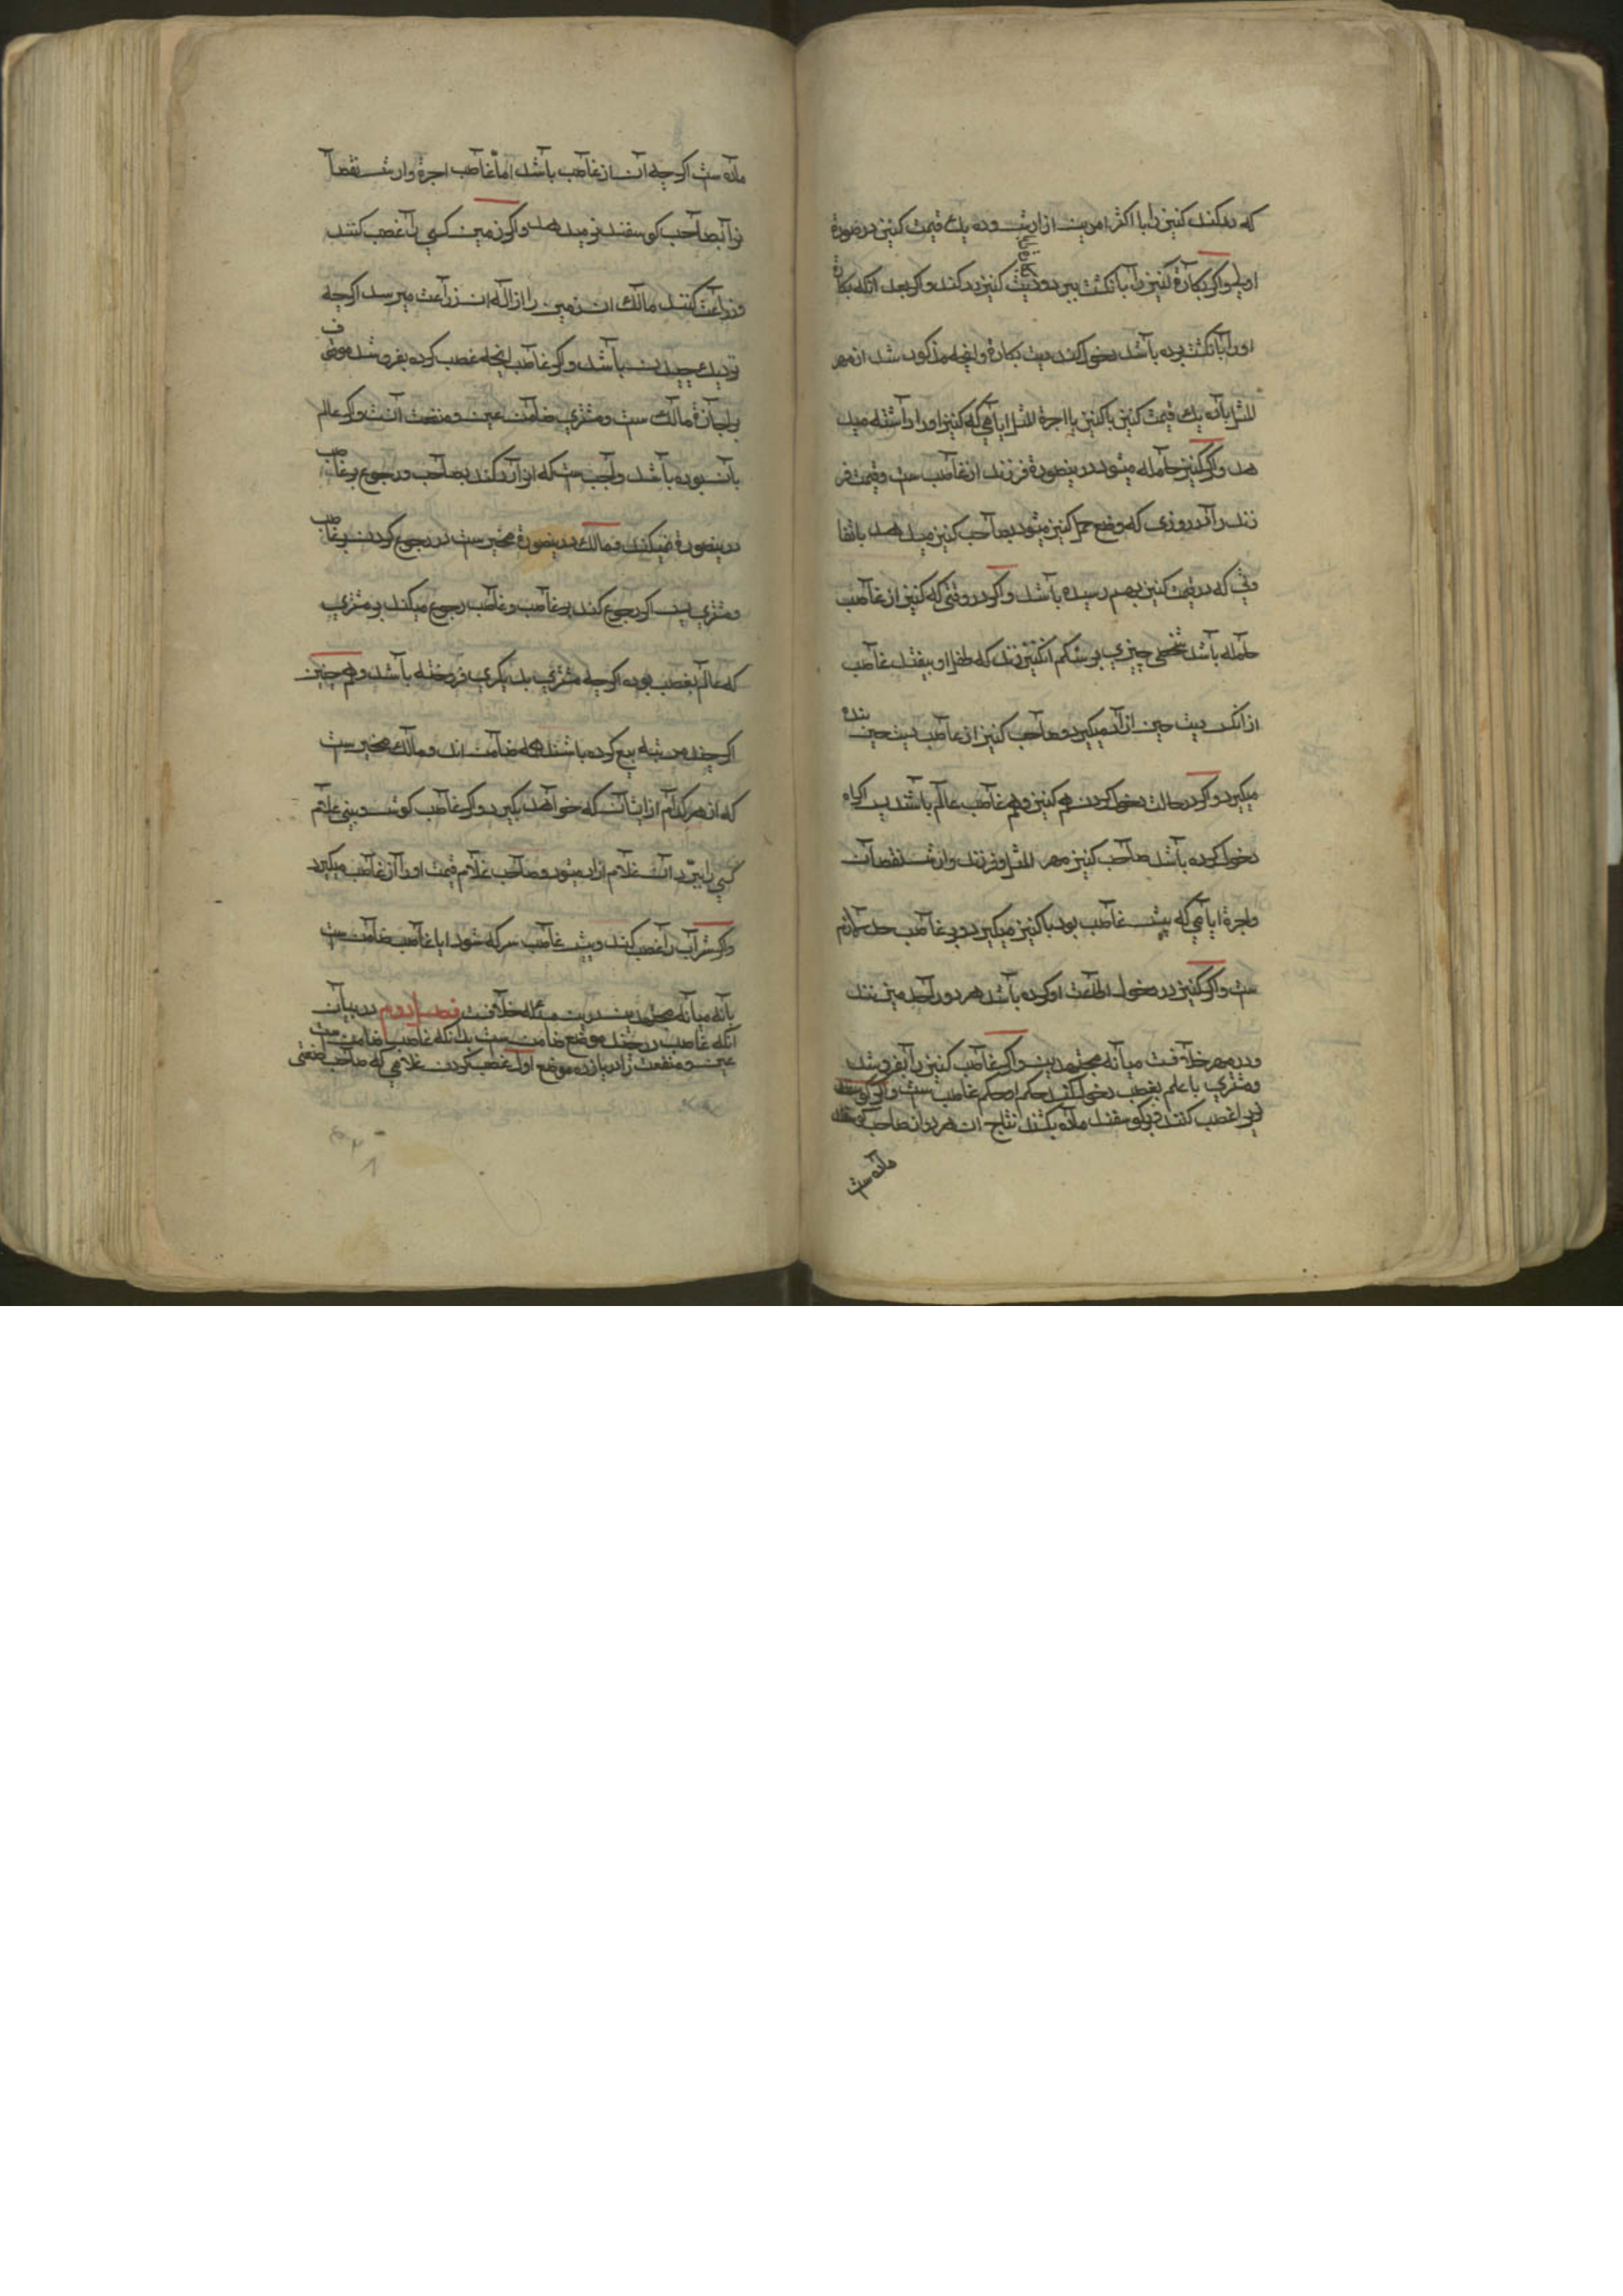 که رد کند کنیز را با اکثر امرین از ارش و ده یك قیمت کنیز در صورة
اولی و اکر بکارة کنیز را بانکشت ببرد و دیت کنیز رد کند و اکر بعد ازانکه بکارة
او را بانکشت برده باشد دخول کند دیت بکارة و انچه مذکور شد از مهر
المثل یا ده یك قیمت کنیز با کنیز با اجرة المثل ایامی که کنیز او را داشته میدـ
هد و اکر کنیز حامله میشود درینصورة فرزند از غاصب ست و قیمت فر
زند را در روزی که وضع حمل کنیز میشود بصاحب کنیز میدهد با تفا
وتی که در قیمت کنیز بهم رسیده باشد و اکر در وقتی که کنیز از غاصب
حامله باشد شخصی چیزی بر شکم ان کنیز زند که طفل او بیفتد غاصب
از انکس دیت جنین ازاد میکیرد و صاحب کنیز از غاصب دیت جنین بنده
میکیرد و اکر در حالت دخول کردن هم کنیز و هم غاصب عالم باشند پس اکر باکراه
دخول کرده باشد صاحب کنیز مهر المثل و فرزند و ارش نقصان
واجرة ایامی که پیش غاصب بود با کنیز میکیرد و بر غاصب حد لازم
ست و اکر کنیز در دخول اطاعت او کرده باشد هر دو را حد میزنند
و در مهر خلافست میانه مجتهدین و اکر غاصب کنیز را بفروشد
و مشتری با علم بغصب دخول کند حکم او حکم غاصب ست و اکر کوسفند
نر را غصب کنند و بر کوسفند ماده بکشند نتاج ان هر دو از صاحب کوسفند
ماده ست
ماده ست اکر چه ان از غاصب باشد اما غاصب اجرة و ارش نقصا
نرا بصاحب کوسفند نر میدهد و اکر زمین کسی را غصب کنند
و زراعت کنند مالك ان زمین را ازاله ان زراعت میرسد اکر چه
نزدیك چیدن باشد و اکر غاصب انچه غصب کرده بفروشد موقوف
بر اجازة مالك ست و مشتری ضامن عین و منفعت انست و اکر عالم
بان نبوده باشد واجب ست که انرا رد کند بصاحب و رجوع بر غاصب
درینصورة نمیکند و مالك درینصورة مخیر ست در رجوع کردن بر غاصب
و مشتری پس اکر رجوع کند بر غاصب و غاصب رجوع میکند بر مشتری
که عالم بغصب بوده اکر چه مشتری بدیکری فروخته باشد و هم چنین
اکر چند مرتبه بیع کرده باشند همه ضامن اند و مالك مخیر ست
که از هر کدام از ایشان که خواهد بکیرد و اکر غاصب کوش و بینی غلام
کسی را ببرد ان غلام ازاد میشود و صاحب غلام قیمت او را از غاصب میکیرد
و اکر شراب را غصب کند و پیش غاصب سرکه شود ایا غاصب ضامن ست
یا نه میانه مجتهدین درین مسئله خلافست فصل دوم در بیان
انکه غاصب در چند موضع ضامن ست بدانکه غاصب ضامن ست
عین و منفعت را در یازده موضع اول غصب کردن غلامی که صاحب صنعتی